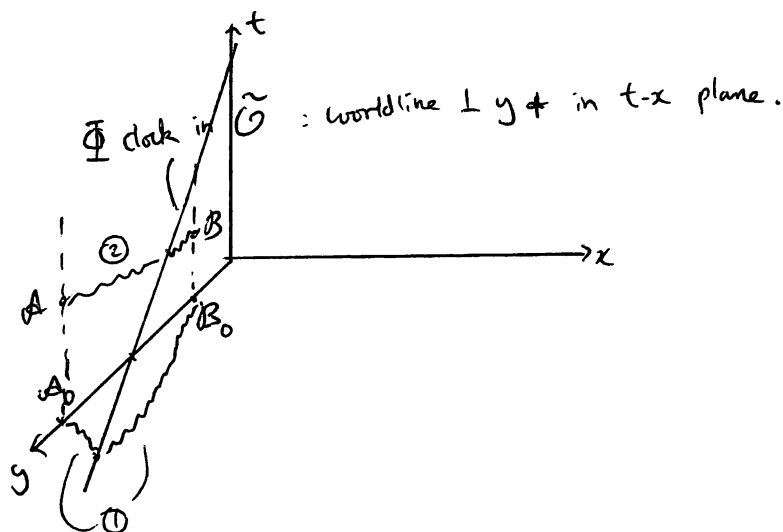 t
Φ clock in Õ : worldline ⊥ y & in t-x plane.
②
B
x
A
B₀
A₀
y
①